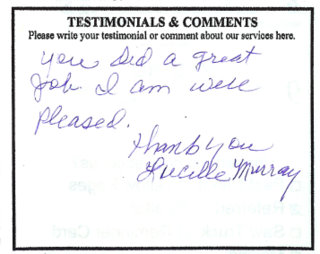 TESTIMONIALS & COMMENTS
Please write your testimonial or comment about our services here.
you did a great
job I am well
pleased.
Thank you
Lucille Murray